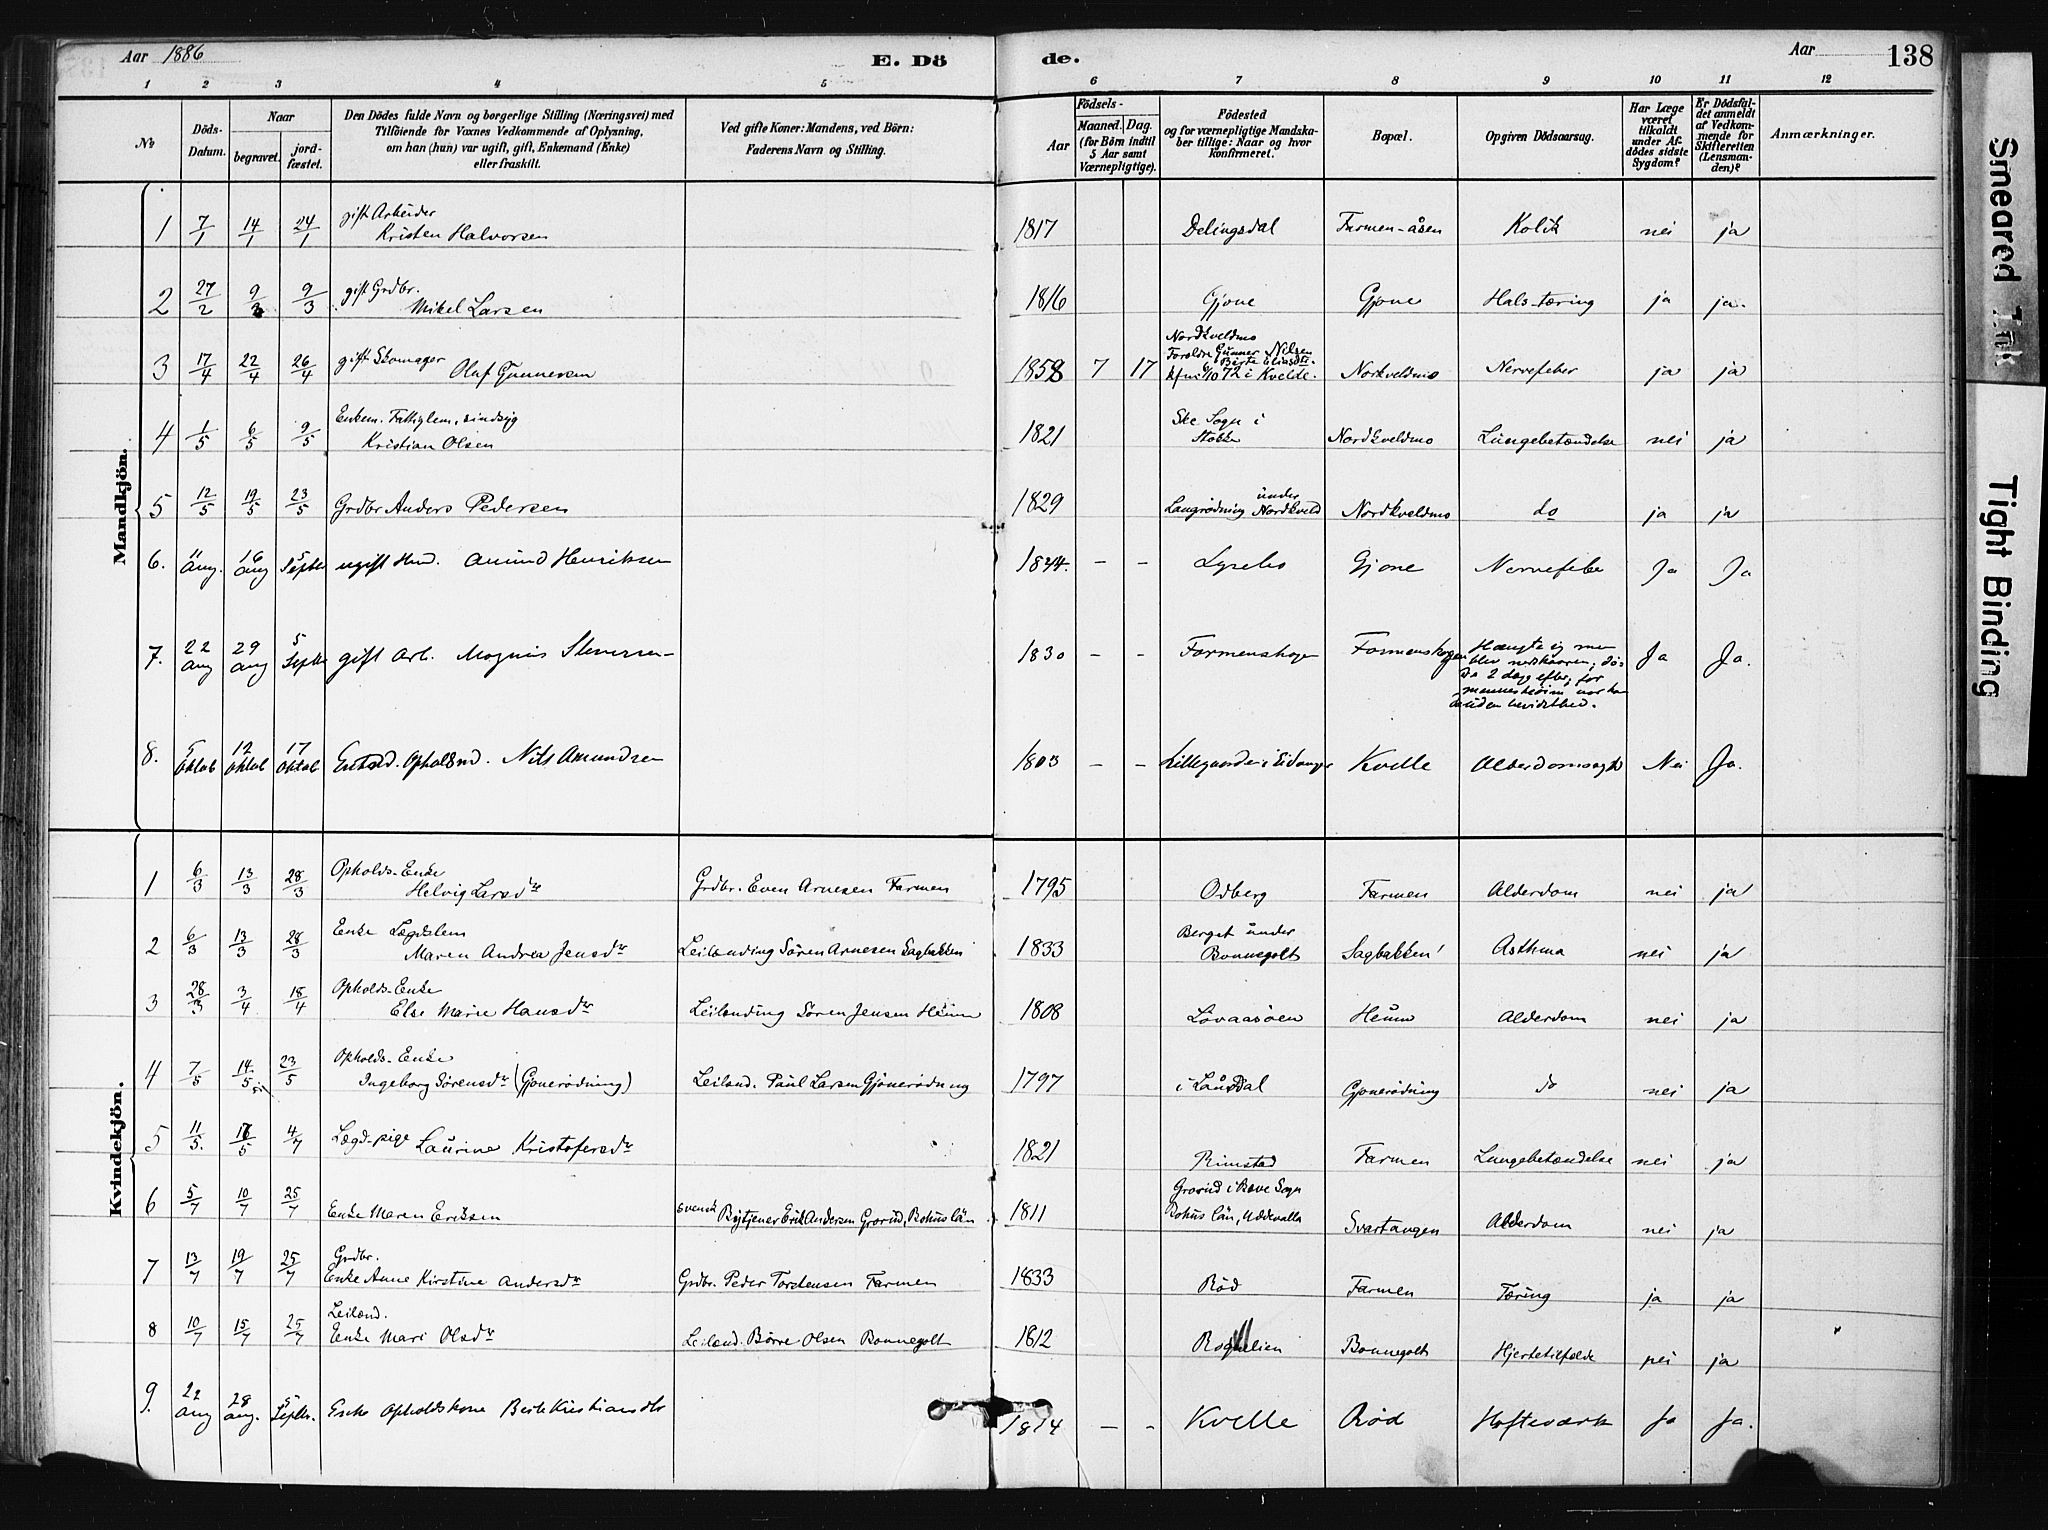 Aar 1886
E. Döde.
Aar
138
1 2 3 4 5 6 7 8 9 10 11 12
No
Döds-Datum.
Naar
begravet.
jordfæstet.
Den Dödes fulde Navn og borgerlige Stilling (Næringsvei) med
Tilföiende for Voxnes Vedkommende af Oplysning,
om han (hun) var ugift, gift, Enkemand (Enke)
eller fraskilt.
Ved gifte Koner: Mandens, ved Börn:
Faderens Navn og Stilling.
Födsels-
Aar
Maaned. Dag.
(for Börn indtil
5 Aar samt
Værnepligtige).
Födested
og for værnepligtige Mandska-
ber tillige: Naar og hvor
konfirmeret.
Bopæl.
Opgiven Dödsaarsag.
Har Læge
været
tilkaldt
under Af-
dödes sidste
Sygdom?
Er Dödsfal-
det anmeldt
af Vedkom-
mende for
Skifteretten
(Lensman-
den)?
Anmærkninger.
Mandkjön.
1 7/1 14/1 24/1 gift Arbeider Kristen Halvorsen 1817 Delingsdal Farmen-åsen Kolik nei ja
2 27/2 9/3 9/3 gift Grdbr. Mikel Larsen 1816 Gjone Gjone Hals-tæring ja ja.
3 17/4 22/4 26/4 gift Skomager Olaf Gunnersen 1858 7 17 Nordkveldmo
Foreldre Gunner Nilsen
72 i Kvelde. Norkveldmo Nervefeber ja ja
4 1/5 6/5 9/5 Enkem. Fattiglem, sindsyg Kristian Olsen 1821 Ske Sogn i Stokke Nordkveldmo Lungebetændelse nei ja
5 12/5 19/5 23/5 Grdbr Anders Pedersen 1829 Langrødning under Nordkveld Nordkveldmo do ja ja
6. 11 Aug. 16 Aug 5 Septbr ugift Amund Henriksen 1844. - - Lysebo Gjone Nervefeber Ja Ja
7. 22 Aug 29 Aug 5 Septbr gift Arb. Magnus 1830 - - Farmenskogen Farmenskogen Hængte sig men
blev nedskaaren; dö-
de 2 dage efter; for
menneskeöine var han
uden bevidsthed. Ja Ja.
8. 5 Oktob 12 Oktob 17 Oktob Opholdsmd. Nils Amundsen 1803 - - Lillegaarden i Eidanger Kvelle Alderdomssvagh Nei Ja.
Kvindekjön.
1 6/3 13/3 28/3 Opholds-Enke Helvig Larsdtr Grdbr. Even Arnesen Farmen 1795 Odberg Farmen Alderdom nei ja
2 6/3 13/3 28/3 Enke Lægdslem Maren Andrea Jensdtr Leilending Søren Arnesen Sagbakken 1833 Berget under Bonnegolt Sagbakken Asthma nei ja
3 28/3 3/4 18/4 Opholds-Enke Else Marie Hansdtr Leilending Søren Jensen Heum 1808 Løvaasøen Heum Alderdom nei ja
4 7/5 14/5 23/5 Opholds-Enke Ingeborg Sørensdtr (Gjonerødning) Leilend. Paul Larsen Gjonerødning 1797 i Laurdal Gjonerødning do nei ja
5 11/5. 16/5 4/7 Lægd-pige Laurine Kristofersdtr 1821 Rimstad Farmen Lungebetændelse nei ja
6 5/7 10/7 25/7 Enke Maren Eriksen svensk Erik Andersen Grorud, Bohus län 1811 Grorud i Bave Sogn
Bohus län, Uddevalla Svartangen Alderdom nei ja
7 13/7 19/7 25/7 Grdbr. Enke Anne Kirstine Andersdtr Grdbr. Peder Torstensen Farmen 1833 Rød Farmen Tæring ja ja
8 10/7 15/7 25/7 Leilænd. Enke Mari Olsdtr Leilænd. Børre Olsen Bonnegolt 1812 Bonnegolt Hjertetilfelde nei ja
9. 22 Aug 28 Aug. 5 Septbr. Enke Opholdskone Berte Kristiansdtr 1814 - - Kvelle Rød Hofteværk Ja Ja.
Smeared Ink
Tight Binding